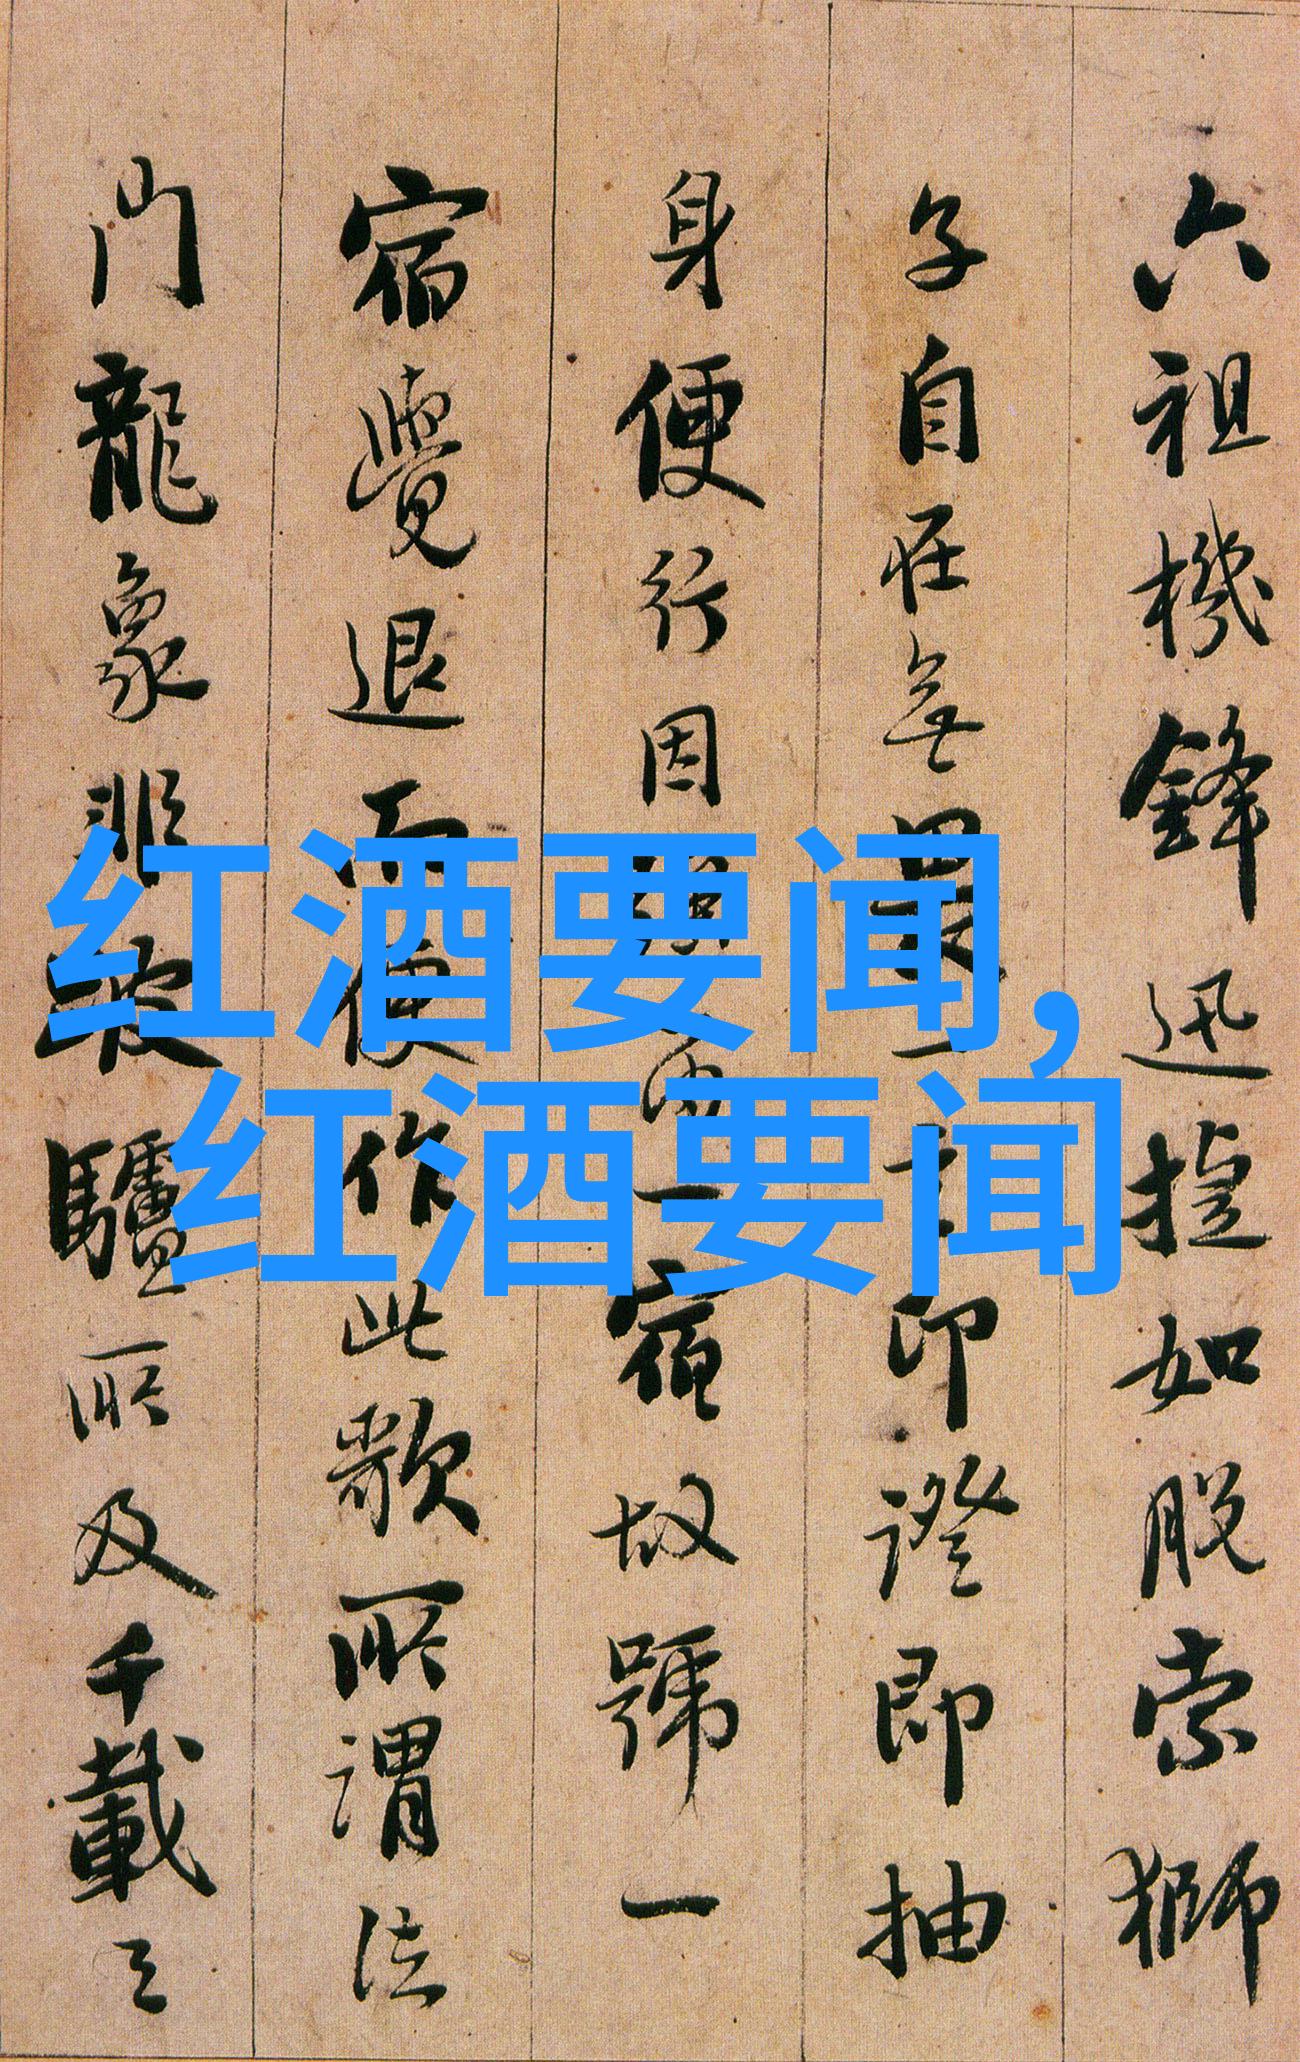 六祖機鋒迅捷如脱索獅
子自在無印證即抽
身便行因一宿故號一
宿覺退而便作此歌所謂法
門龍象非跛驢所及千載之
红酒要闻,
红酒要闻